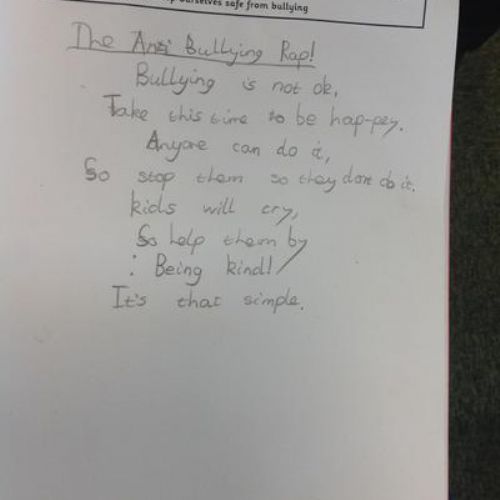 ourselves safe from bullying
The Anti Bullying Rap!
Bullying is not ok,
Take this time to be hap-pey.
Anyone can do it,
So stop them so they dont do it.
kids will cry,
So help them by
: Being kind!
It's that simple.